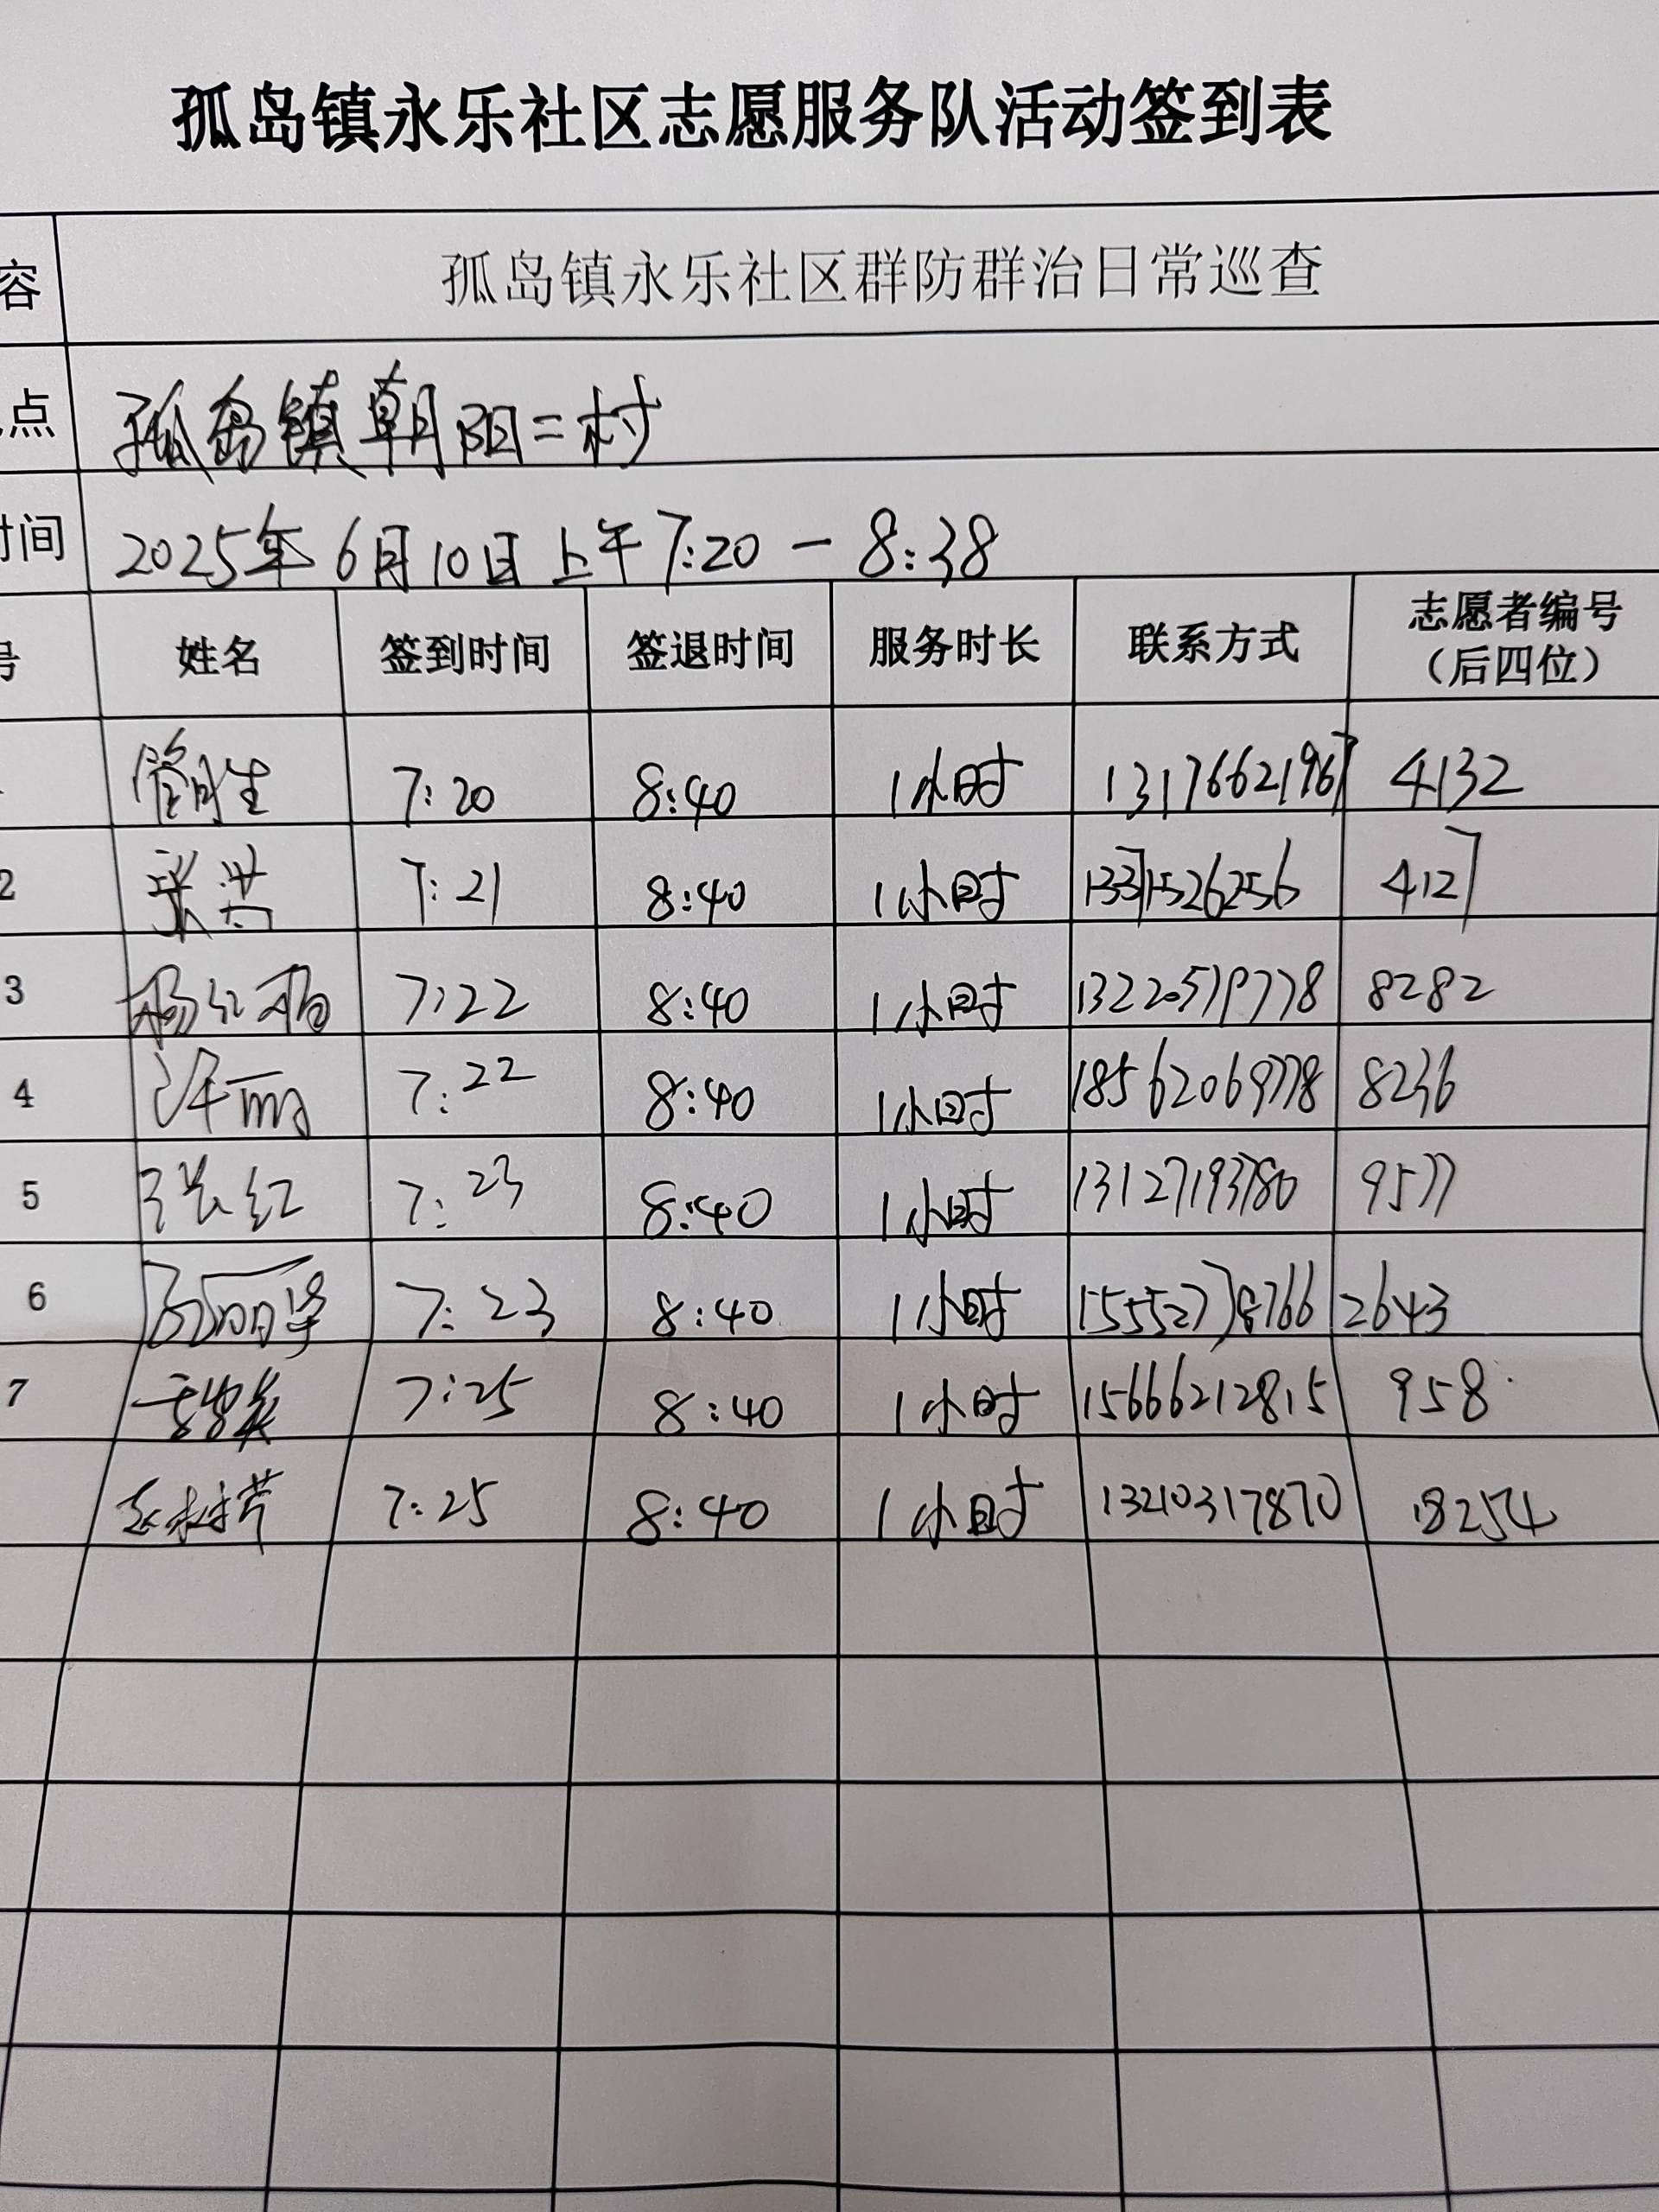 孤岛镇永乐社区志愿服务队活动签到表
容 孤岛镇永乐社区群防群治日常巡查
点 孤岛镇朝阳二村
时间 2025年6月10日上午7:20-8:38
号 姓名 签到时间 签退时间 服务时长 联系方式 志愿者编号
(后四位)
7:20 8:40 1小时 13176621967 4132
2 张洪 7:21 8:40 1小时 13371526256 4127
3 杨红丽 7:22 8:40 1小时 8282
4 许丽 7:22 8:40 1小时 18562069778 8236
5 张红 7:23 8:40 1小时 13127193780 9577
6 7:23 8:40 1小时 2643
7 7:25 8:40 1小时 15666212815 958
7:25 8:40 1小时 13210317870 8254